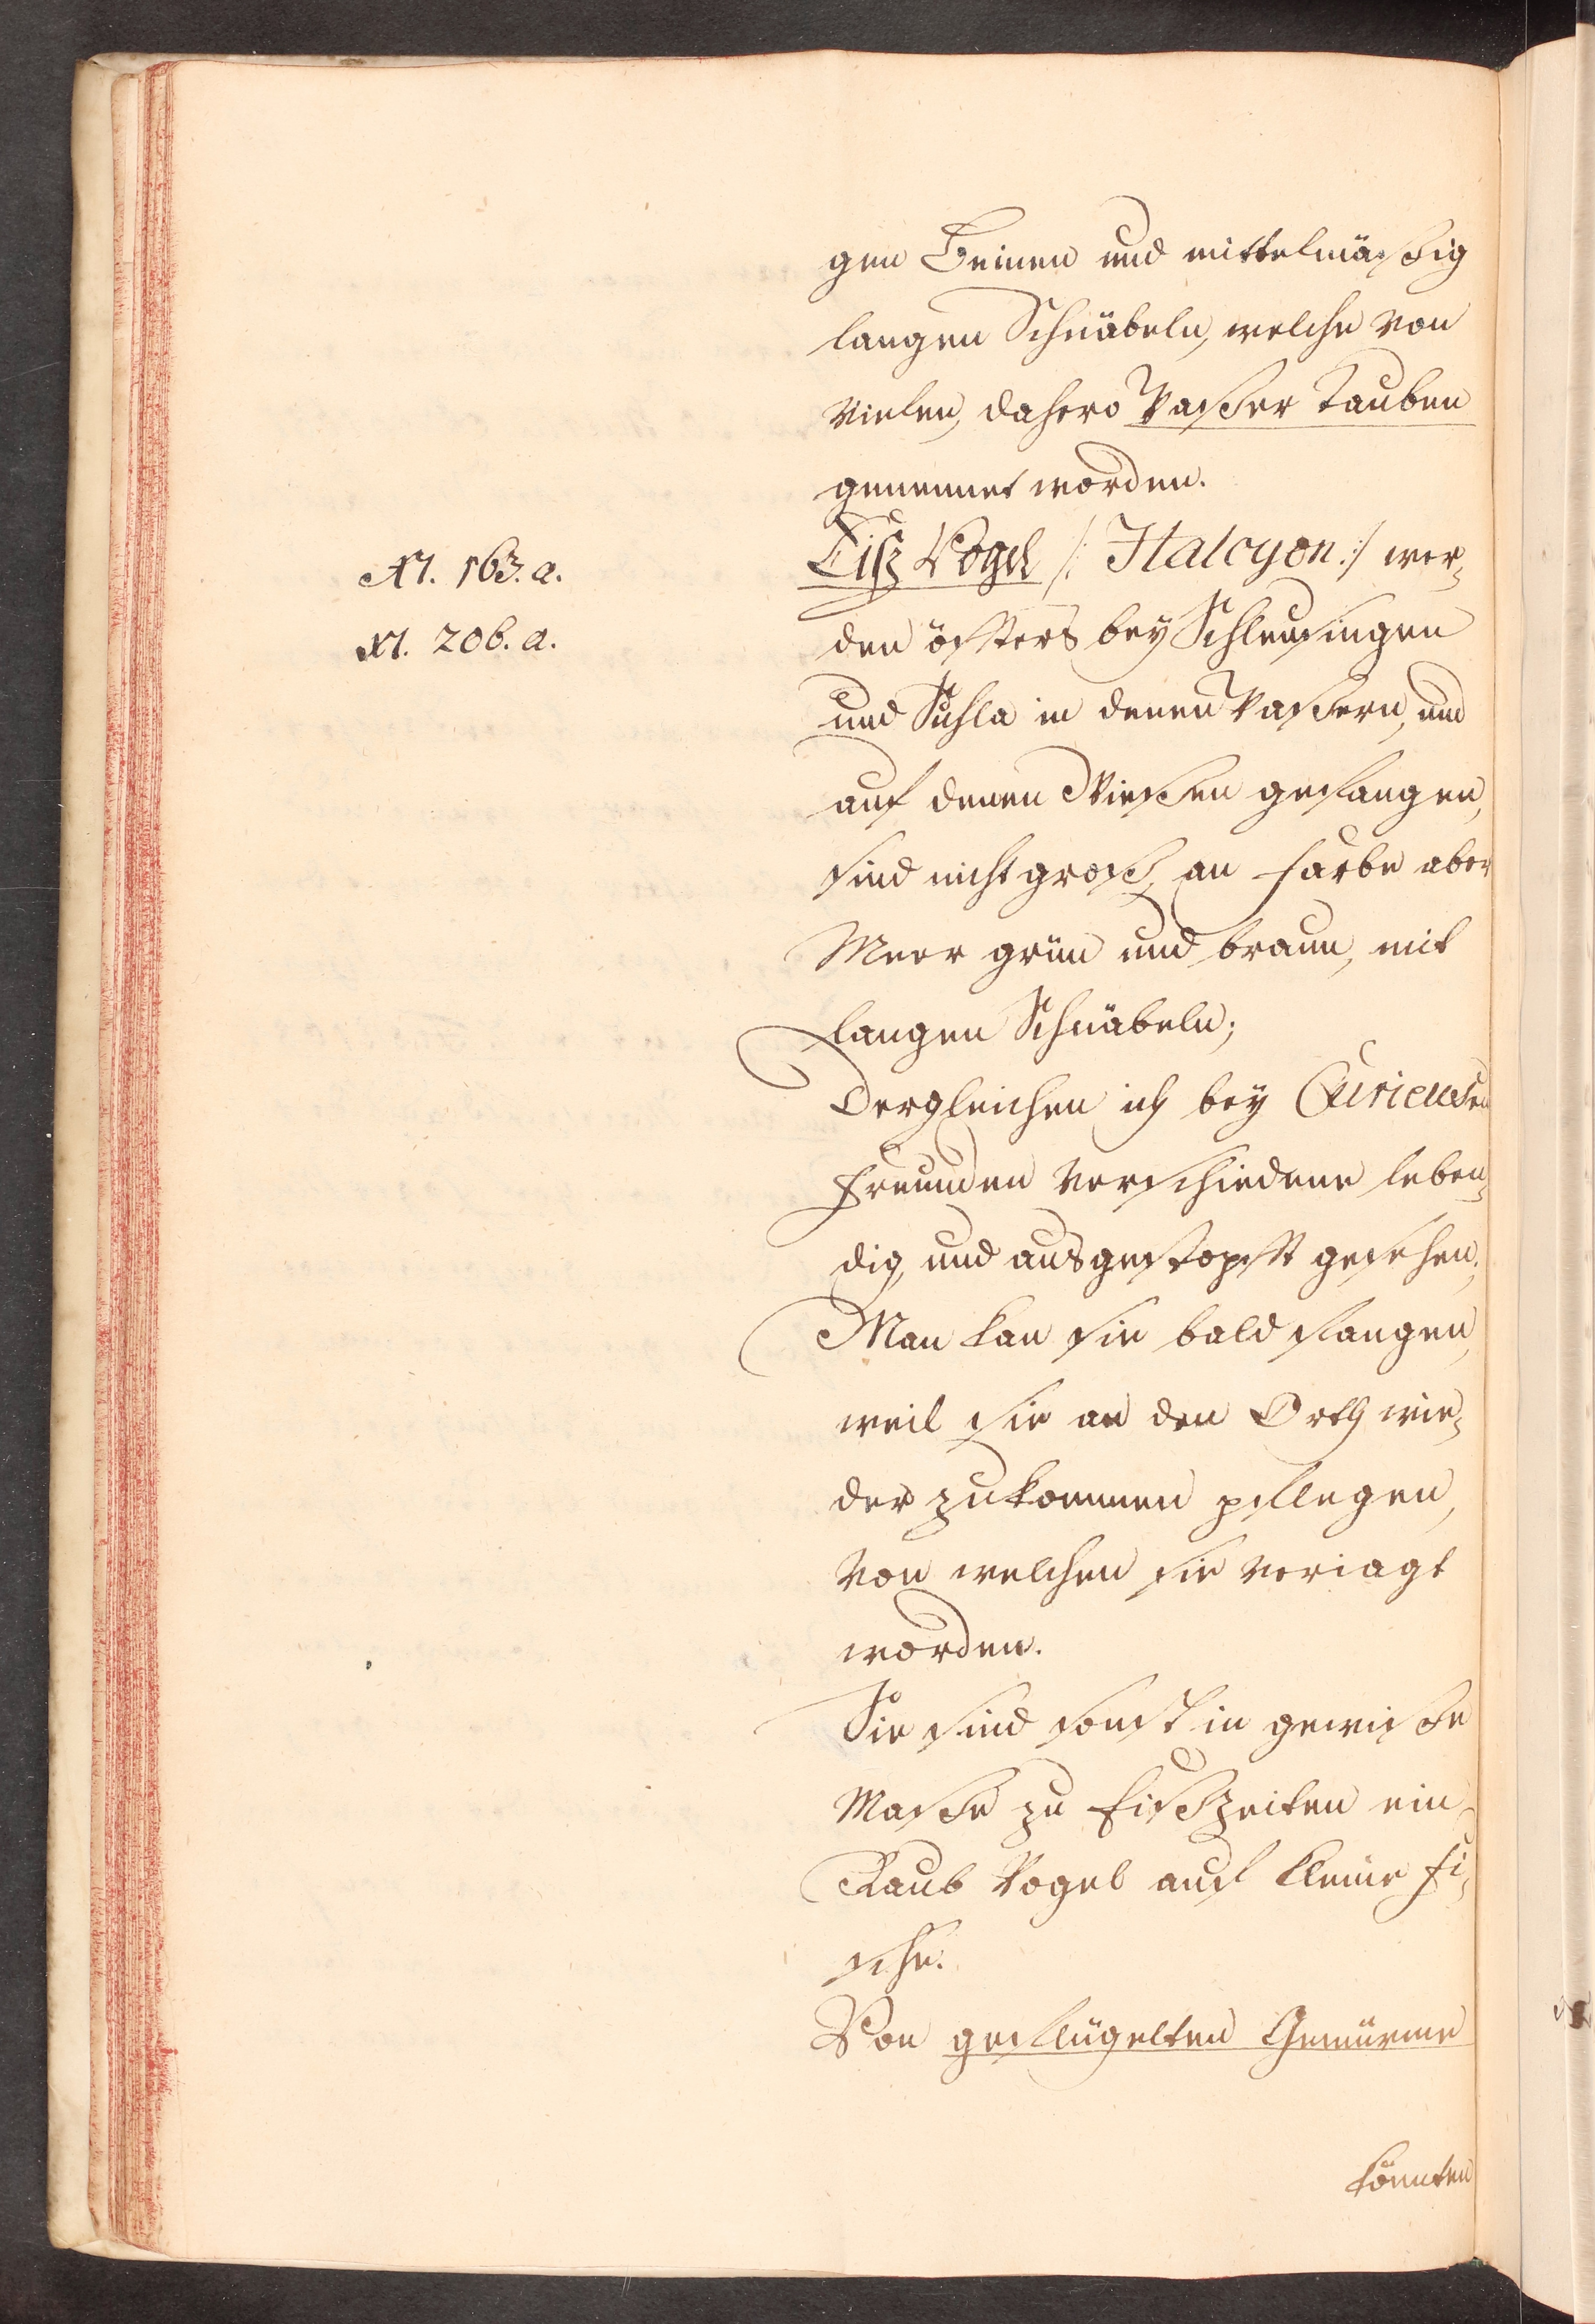 gen Beinen und mittelmäßig
langen Schnäbeln, welche von
vielen, dahero Waßer Tauben
genennet worden.
N. 163. a.
Eiß Vögel /: Halcyon :/ wer-
N. 206. a.
den öffters bey Schleusingen
und Suhla in denen Waßern, und
auf denen Wießen gefangen,
sind nicht groß, an Farbe aber
Meer grün und braun, mit
langen Schnäbeln;
Dergleichen ich bey Curieusen
Freunden verschiedene leben-
dig, und ausgestopfft gesehen;
Man kan sie bald fangen,
weil sie an den Orth wie-
der zukommen pflegen,
von welchen sie veriagt
worden.
Sie sind sonst in gewiße
Maße zu Eißzeiten ein
Raub Vogel auf kleine Fi-
sche.
Von geflügelten Gewürme
könnten